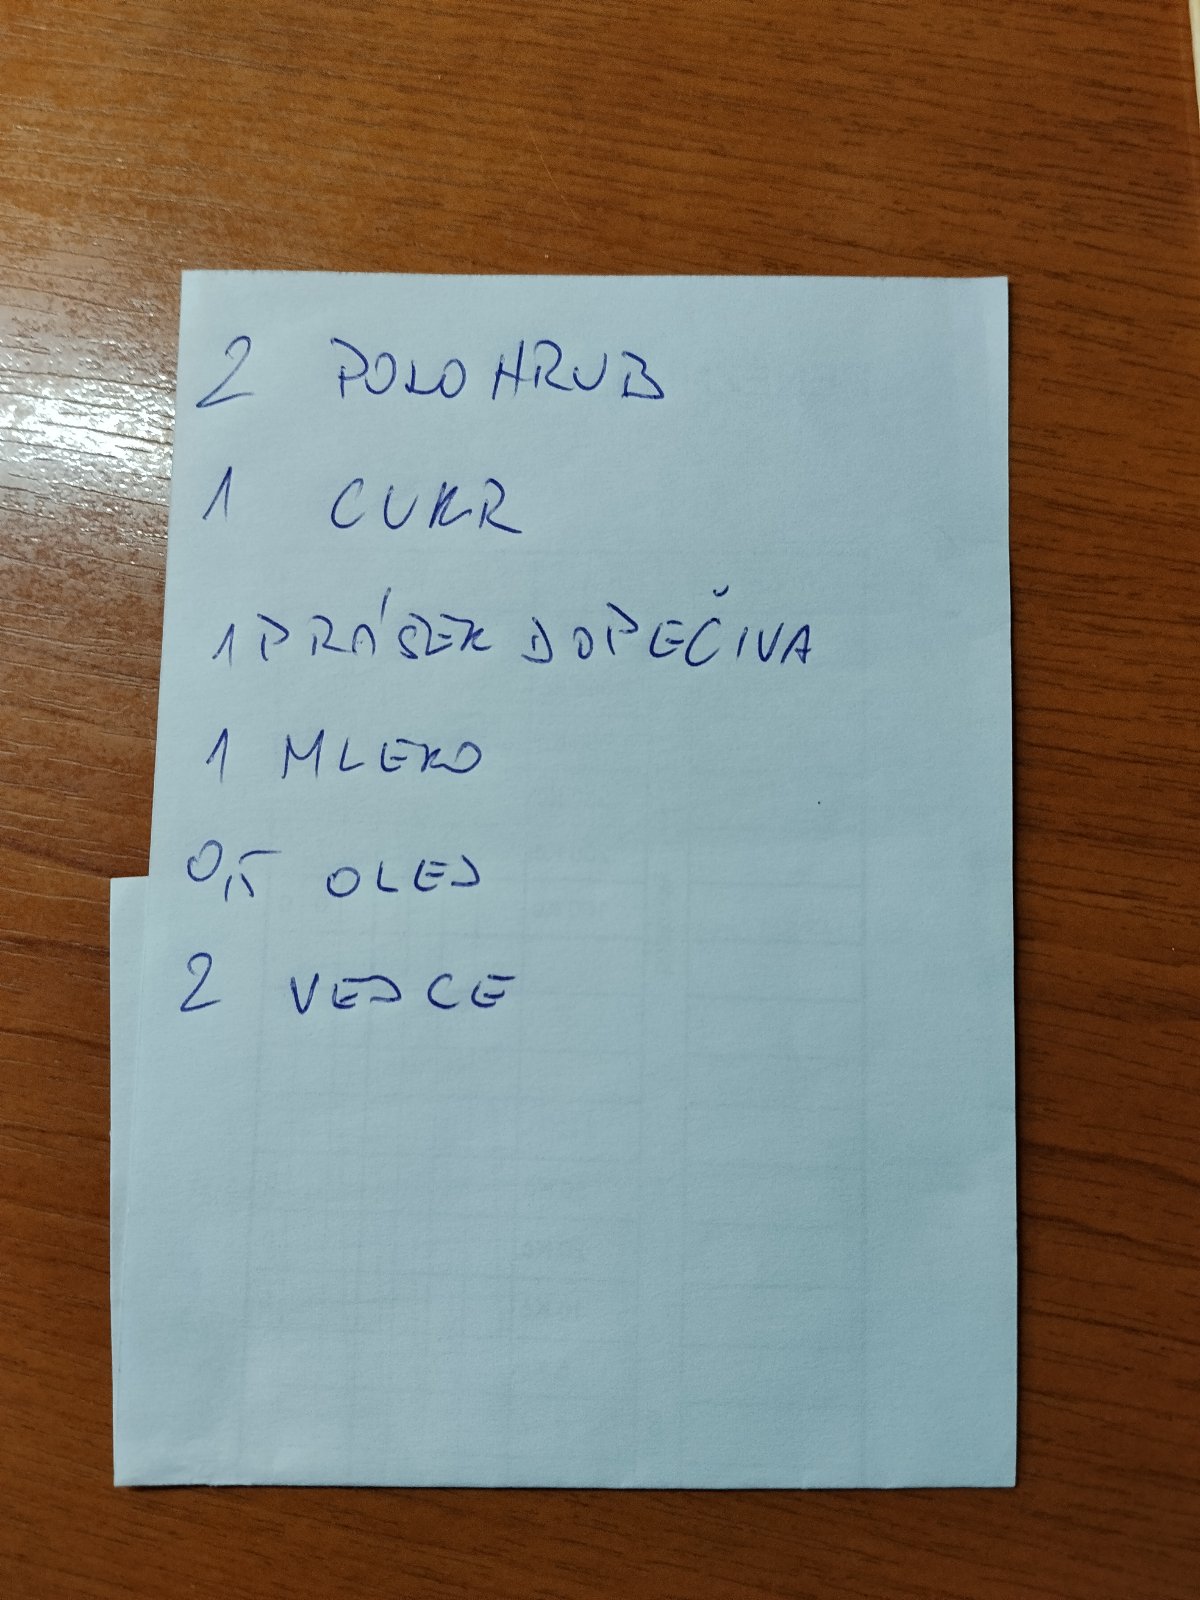 2 POLOHRUB
1 CUKR
1 PRÁSEK DOPEČIVA
1 MLEKO
0,5 OLEJ
2 VEJCE